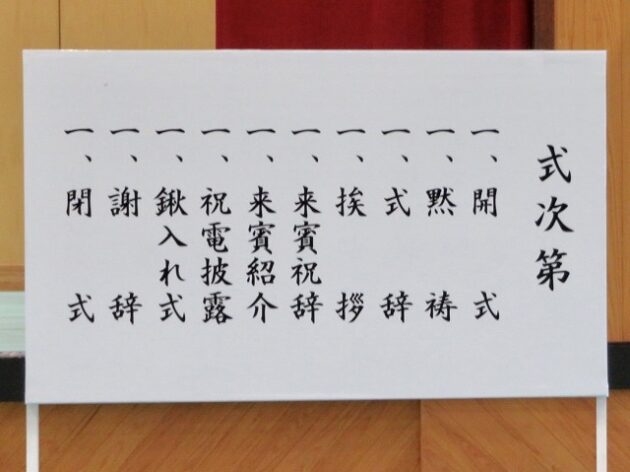 式次第
一、開式
一、黙祷
一、式辞
一、挨拶
一、来賓祝辞
一、来賓紹介
一、祝電披露
一、鍬入れ式
一、謝辞
一、閉式